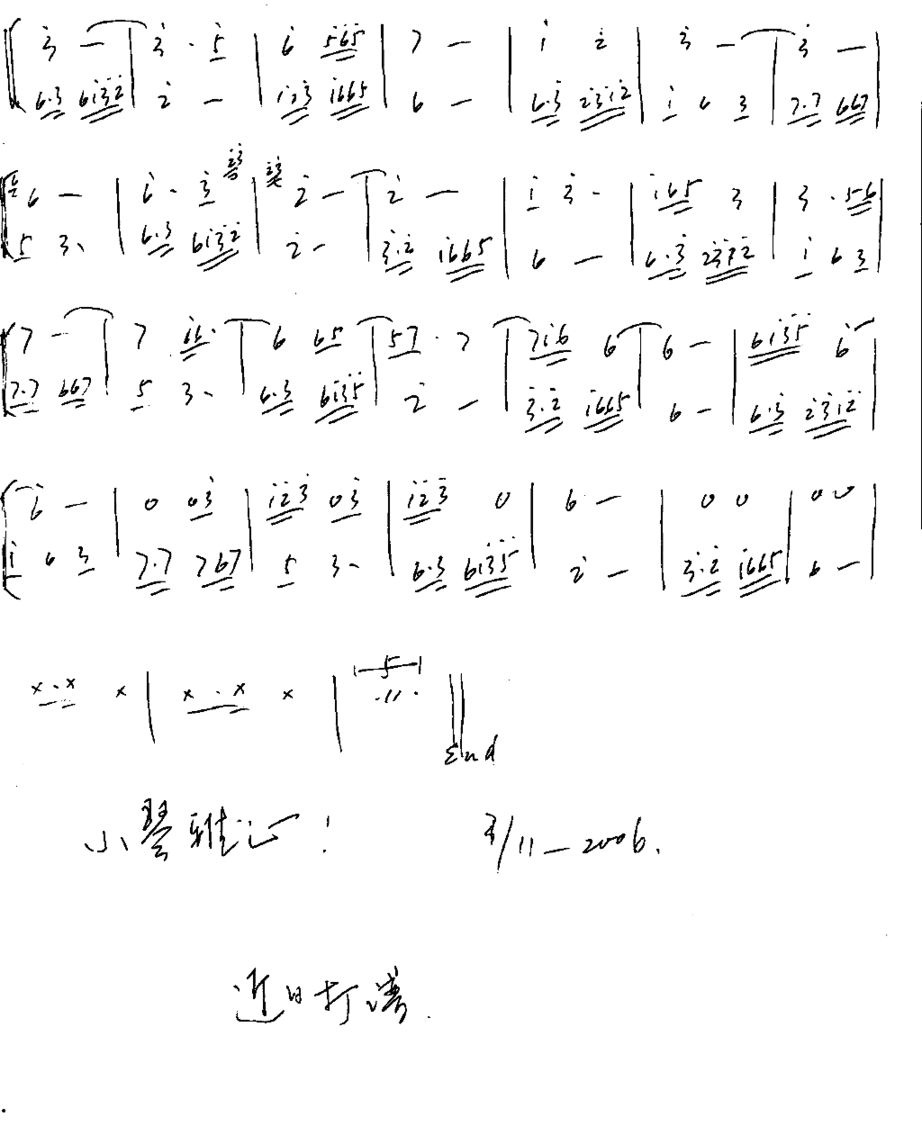 3 — | 3 · 5 | 6 565 | 7 — | i 2 | 3 — | 3 — |
6·3 6132 | 2 — | 123 1665 | 6 — | 6·3 2312 | i 6 3 | 7·7 667 |
6 — | 6 · 3 | 2 — | 2 — | i 3 · | i65 3 | 3 · 56 |
5 3 · | 6·3 6132 | 2 — | 3·2 1665 | 6 — | 6·3 2312 | i 6 3 |
7 — | 7 | 6 65 | 57 · 7 | 7i6 6 | 6 — | 6135 6 |
7·7 667 | 5 3 · | 6·3 6135 | 2 — | 3·2 1665 | 6 — | 6·3 2312 |
6 — | 0 03 | 123 03 | 123 0 | 6 — | 0 0 | 0 0 |
i 6 3 | 7·7 767 | 5 3 — | 6·3 6135 | 2 — | 3·2 1665 | 6 — |
x · x x | x · x x | 5
End
小琴雅正! 3/11—2006.
近日打谱.